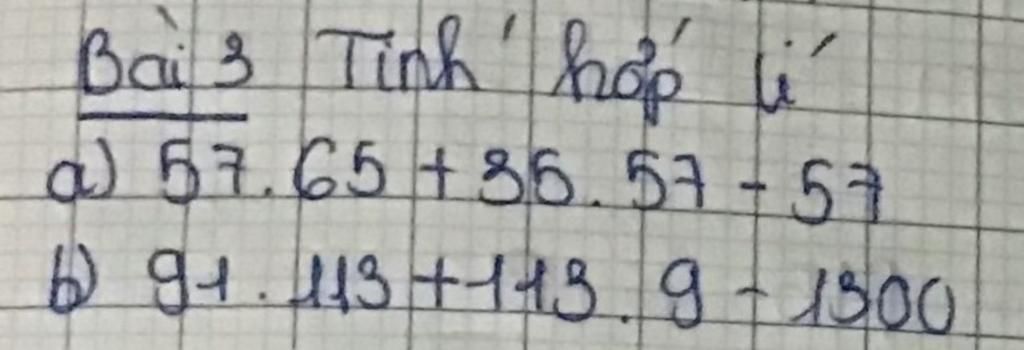 Bài 3 Tính hợp lí
a) 57.65 + 35.57 - 57
b) 91.113 + 113.9 - 1300